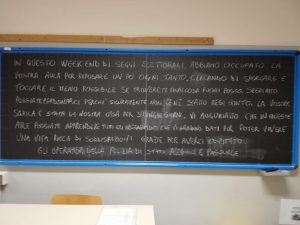 IN QUESTO WEEK-END DI SEGGI ELETTORALI, ABBIAMO OCCUPATO LA
VOSTRA AULA PER RIPOSARE UN PO' OGNI TANTO, CERCANDO DI SPORCARE E
TOCCARE IL MENO POSSIBILE SE TROVERETE QUALCOSA FUORI POSTO, SPERIAMO
POSSIATE PERDONARCI PERCHÉ SICURAMENTE NON CE NE SIAMO RESI CONTO. LA VOSTRA
SCUOLA È STATA LA NOSTRA CASA PER GIORNI, VI AUGURIAMO CHE IN QUESTE
AULE POSSIATE APPRENDERE TUTTI GLI INSEGNAMENTI CHE VI VERRANNO DATI PER POTER VIVERE
UNA VITA RICCA DI SODDISFAZIONI. GRAZIE PER AVERCI OSPITATO
GLI OPERATORI DELLA POLIZIA DI STATO E PASQUALE